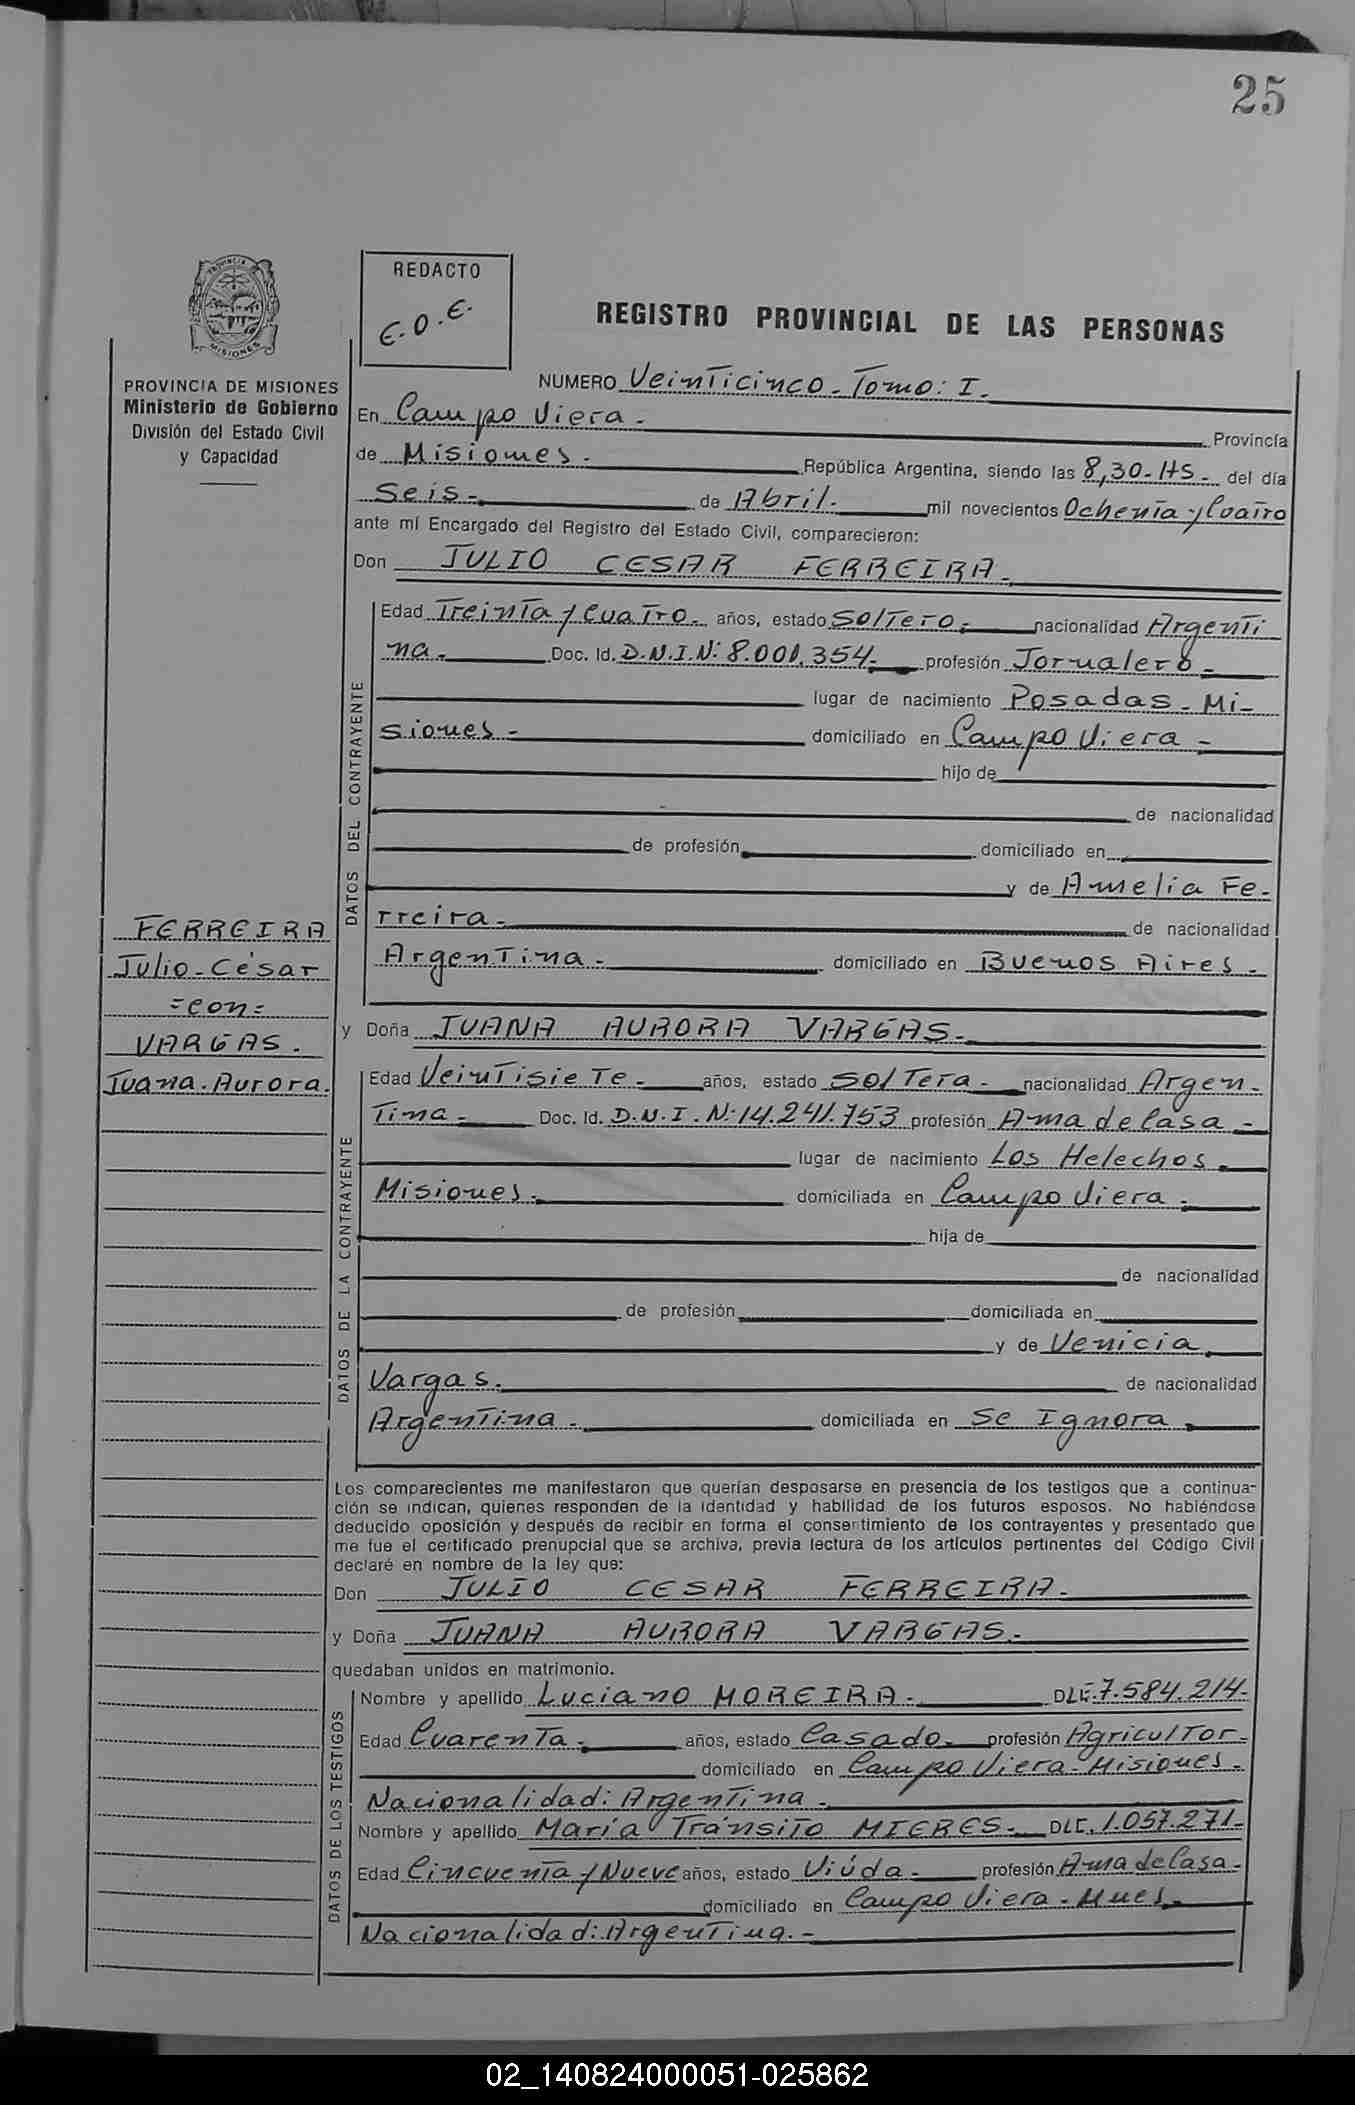 25
REDACTO
E.O.E.
REGISTRO PROVINCIAL DE LAS PERSONAS
PROVINCIA DE MISIONES
Ministerio de Gobierno
División del Estado Civil
y Capacidad
NUMERO Veinticinco - Tomo: I.
En Campo Viera. Provincia
de Misiones. República Argentina, siendo las 8,30-HS- del día
Seis- de Abril. mil novecientos Ochenta y Cuatro
ante mí Encargado del Registro del Estado Civil, comparecieron:
Don JULIO CESAR FERREIRA.
DATOS DEL CONTRAYENTE
Edad Treinta y Cuatro. años, estado Soltero. nacionalidad Argenti
na. Doc. Id. D.N.I.N: 8.001.354. profesión Jornalero
lugar de nacimiento Posadas- Mi-
siones- domiciliado en Campo Viera -
hijo de
de nacionalidad
de profesión domiciliado en
y de Amelia Fe-
rreira. de nacionalidad
Argentina. domiciliado en Buenos Aires.
FERREIRA
Julio-César
=con=
VARGAS.
Juana.Aurora.
y Doña JUANA AURORA VARGAS.
DATOS DE LA CONTRAYENTE
Edad Veintisiete. años, estado Soltera- nacionalidad Argen-
tina- Doc. Id. D.N.I.N: 14.241.753 profesión Ama de Casa -
lugar de nacimiento Los Helechos
Misiones. domiciliada en Campo Viera.
hija de
de nacionalidad
de profesión domiciliada en
y de Venicia
Vargas. de nacionalidad
Argentina. domiciliada en Se Ignora
Los comparecientes me manifestaron que querían desposarse en presencia de los testigos que a continua-
ción se indican, quienes responden de la identidad y habilidad de los futuros esposos. No habiéndose
deducido oposición y después de recibir en forma el consentimiento de los contrayentes y presentado que
me fue el certificado prenupcial que se archiva, previa lectura de los artículos pertinentes del Código Civil
declaré en nombre de la ley que:
Don JULIO CESAR FERREIRA.
y Doña JUANA AURORA VARGAS.
quedaban unidos en matrimonio.
DATOS DE LOS TESTIGOS
Nombre y apellido Luciano MOREIRA. DLE. 7.584.214-
Edad Cuarenta. años, estado Casado. profesión Agricultor-
domiciliado en Campo Viera-Misiones.
Nacionalidad: Argentina.
Nombre y apellido María Tránsito MIERES. DLC. 1.057.271-
Edad Cincuenta y Nueve años, estado Viúda. profesión Ama de Casa-
domiciliado en Campo Viera-Mnes.
Nacionalidad: Argentina.-
02_140824000051-025862